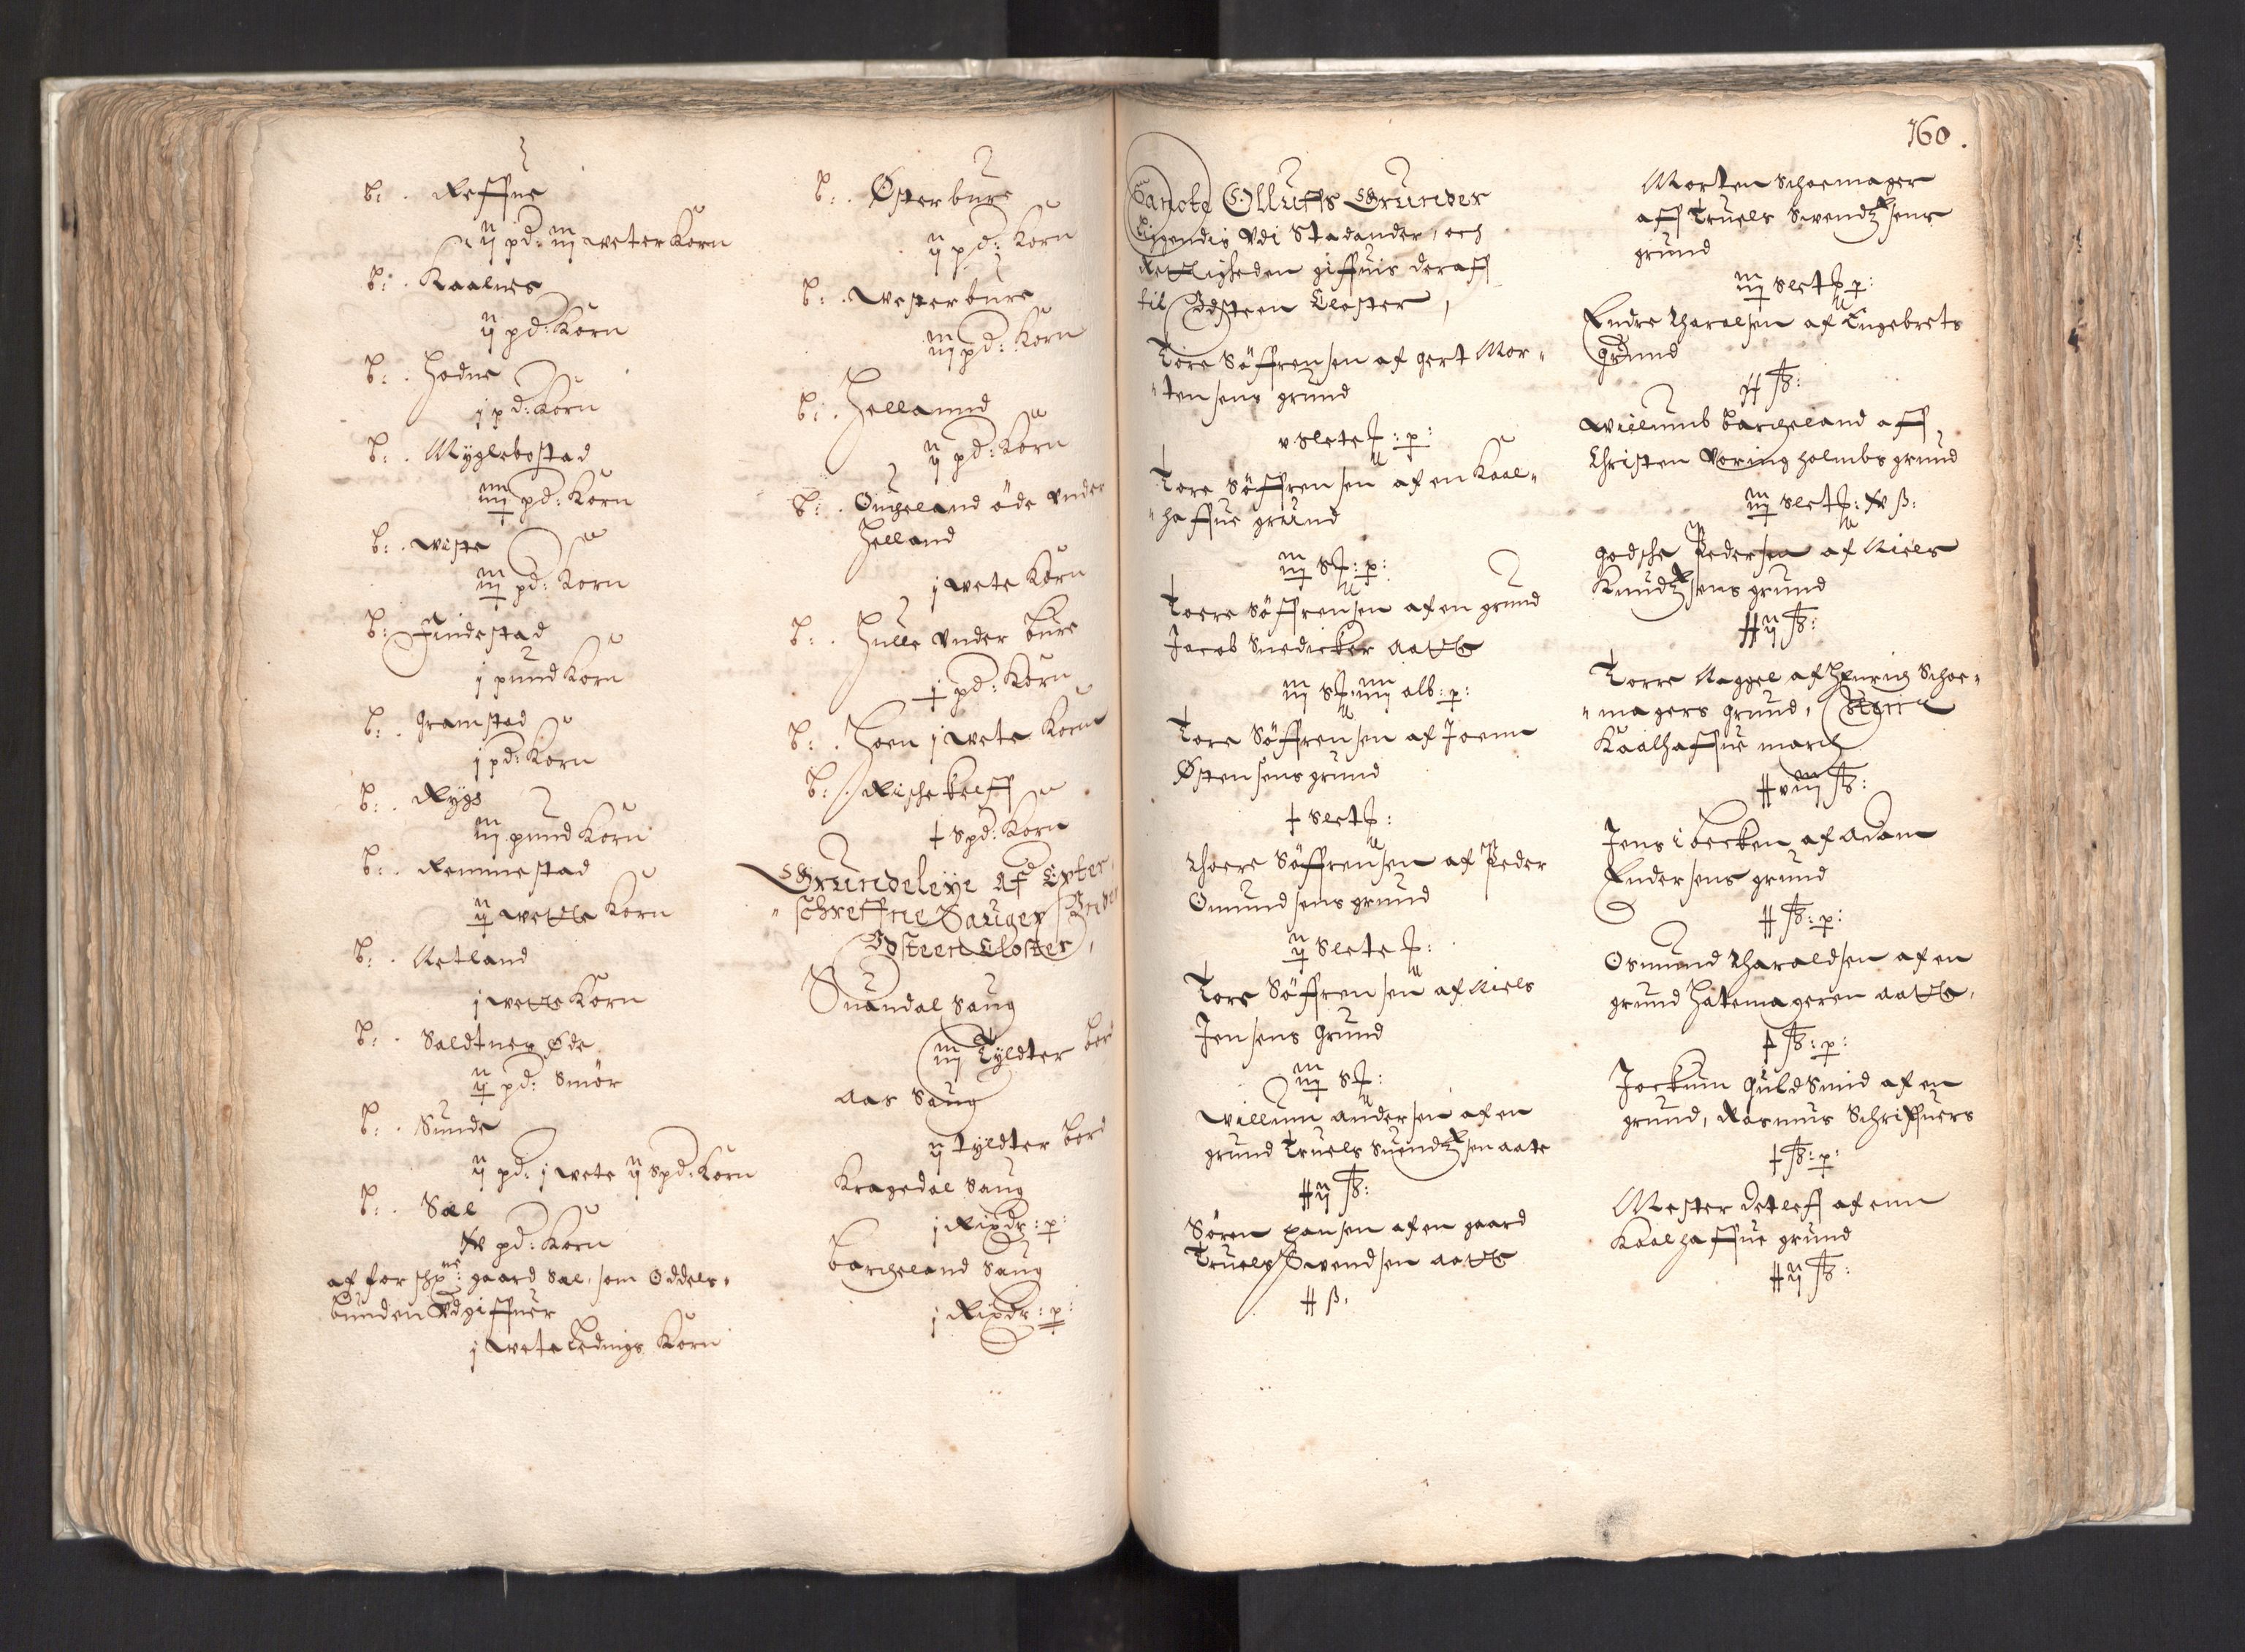 B: . Reffne
ij pd: iij weter Korn
B: . Kaalnes
ij pd: Korn
B: . Hodne
j pd: Korn
B: . Myglebostad
iiij pd: Korn
B: . Wiste
iij pd: Korn
B: Findestad
j pund Korn
B: . Gramstad
j pd: Korn
B: . Rygs
iij pund Korn
B: . Remmestad
ij wette Korn
B: . Aetland
j wette Korn
B: . Saldtnes Øde
ij pd: Smör
B: . Sunde
ij pd: j wete ij spd: Korn
B: . Sæl
pd: Korn
af for schne: gaard Sæl, som Oddels-
bunden Udgiffuer
j wete Ledings Korn
B: . Østerbure
ij pd: Korn
B: . Westerbure
iij pd: Korn
B: . Hellannd
ij pd: Korn
B: . Ougeland öde Under
Helland
j wete Korn
B: . Hulle Under Bure
j pd: Korn
B: . Hoen j wete Korn
B: . Rischekelff
spd: Korn
Grundeleye Af
schreffne Sauger
Udsteen Closter,
Suandal Saug
iij Tyldter bord
Aas Saug
ij tyldter bord
Kragedal Saug
j Rixdr: p:
Bargeland Saug
j Rixdr: p:
160.
Sancte Olluffs Grunder
Liggendis Udi Stadanger, och
Rettigheden giffuis deraff
til Udsteen Closter,
Tore Söffrensen af Gert Mor-
-tensens grund
v Slete : p:
Tore Söffrensen af en Kaal-
-haffue grund
iij : p:
Toere Söffrensen af en grund
Jacob Snedicker aatte
iij iiij alb: p:
Tore Söffrensen af Joenn
Østensens grund
Slet :
Thoere Söffrensen af Peder
Omundsens grund
ij Slete :
Tore Söffrensen af Niels
Jensens Grund
iij :
Willum Andersen af en
grund Truels Suendtzsen aate
ij :
Sören Hansen af en gaard
Truels Swendsen aatte
ß.
Morten Schoemager
aff Truels Swendtzsens
grund
iij Slet p:
Endre Haralsen af Engebrets
Grund
Willumb Bargeland aff
Christen Voringholmbs grund
iij Slet : ß:
Godsche Pedersen af Niels
Knudtzsens grund
ij :
Torre Naggel af Henrig Schoe-
-magers Grund,
Kaalhaffue march
viij :
Jens i becken af Adam
Endersens grund
: p:
Osmund Haraldsen af en
grund Hatemageren aatte,
: p:
Jockum Guldsmid af en
grund, Rasmus Schriffuers
: p:
Mester Detleff af enn
Kaalhaffue grund
ij :